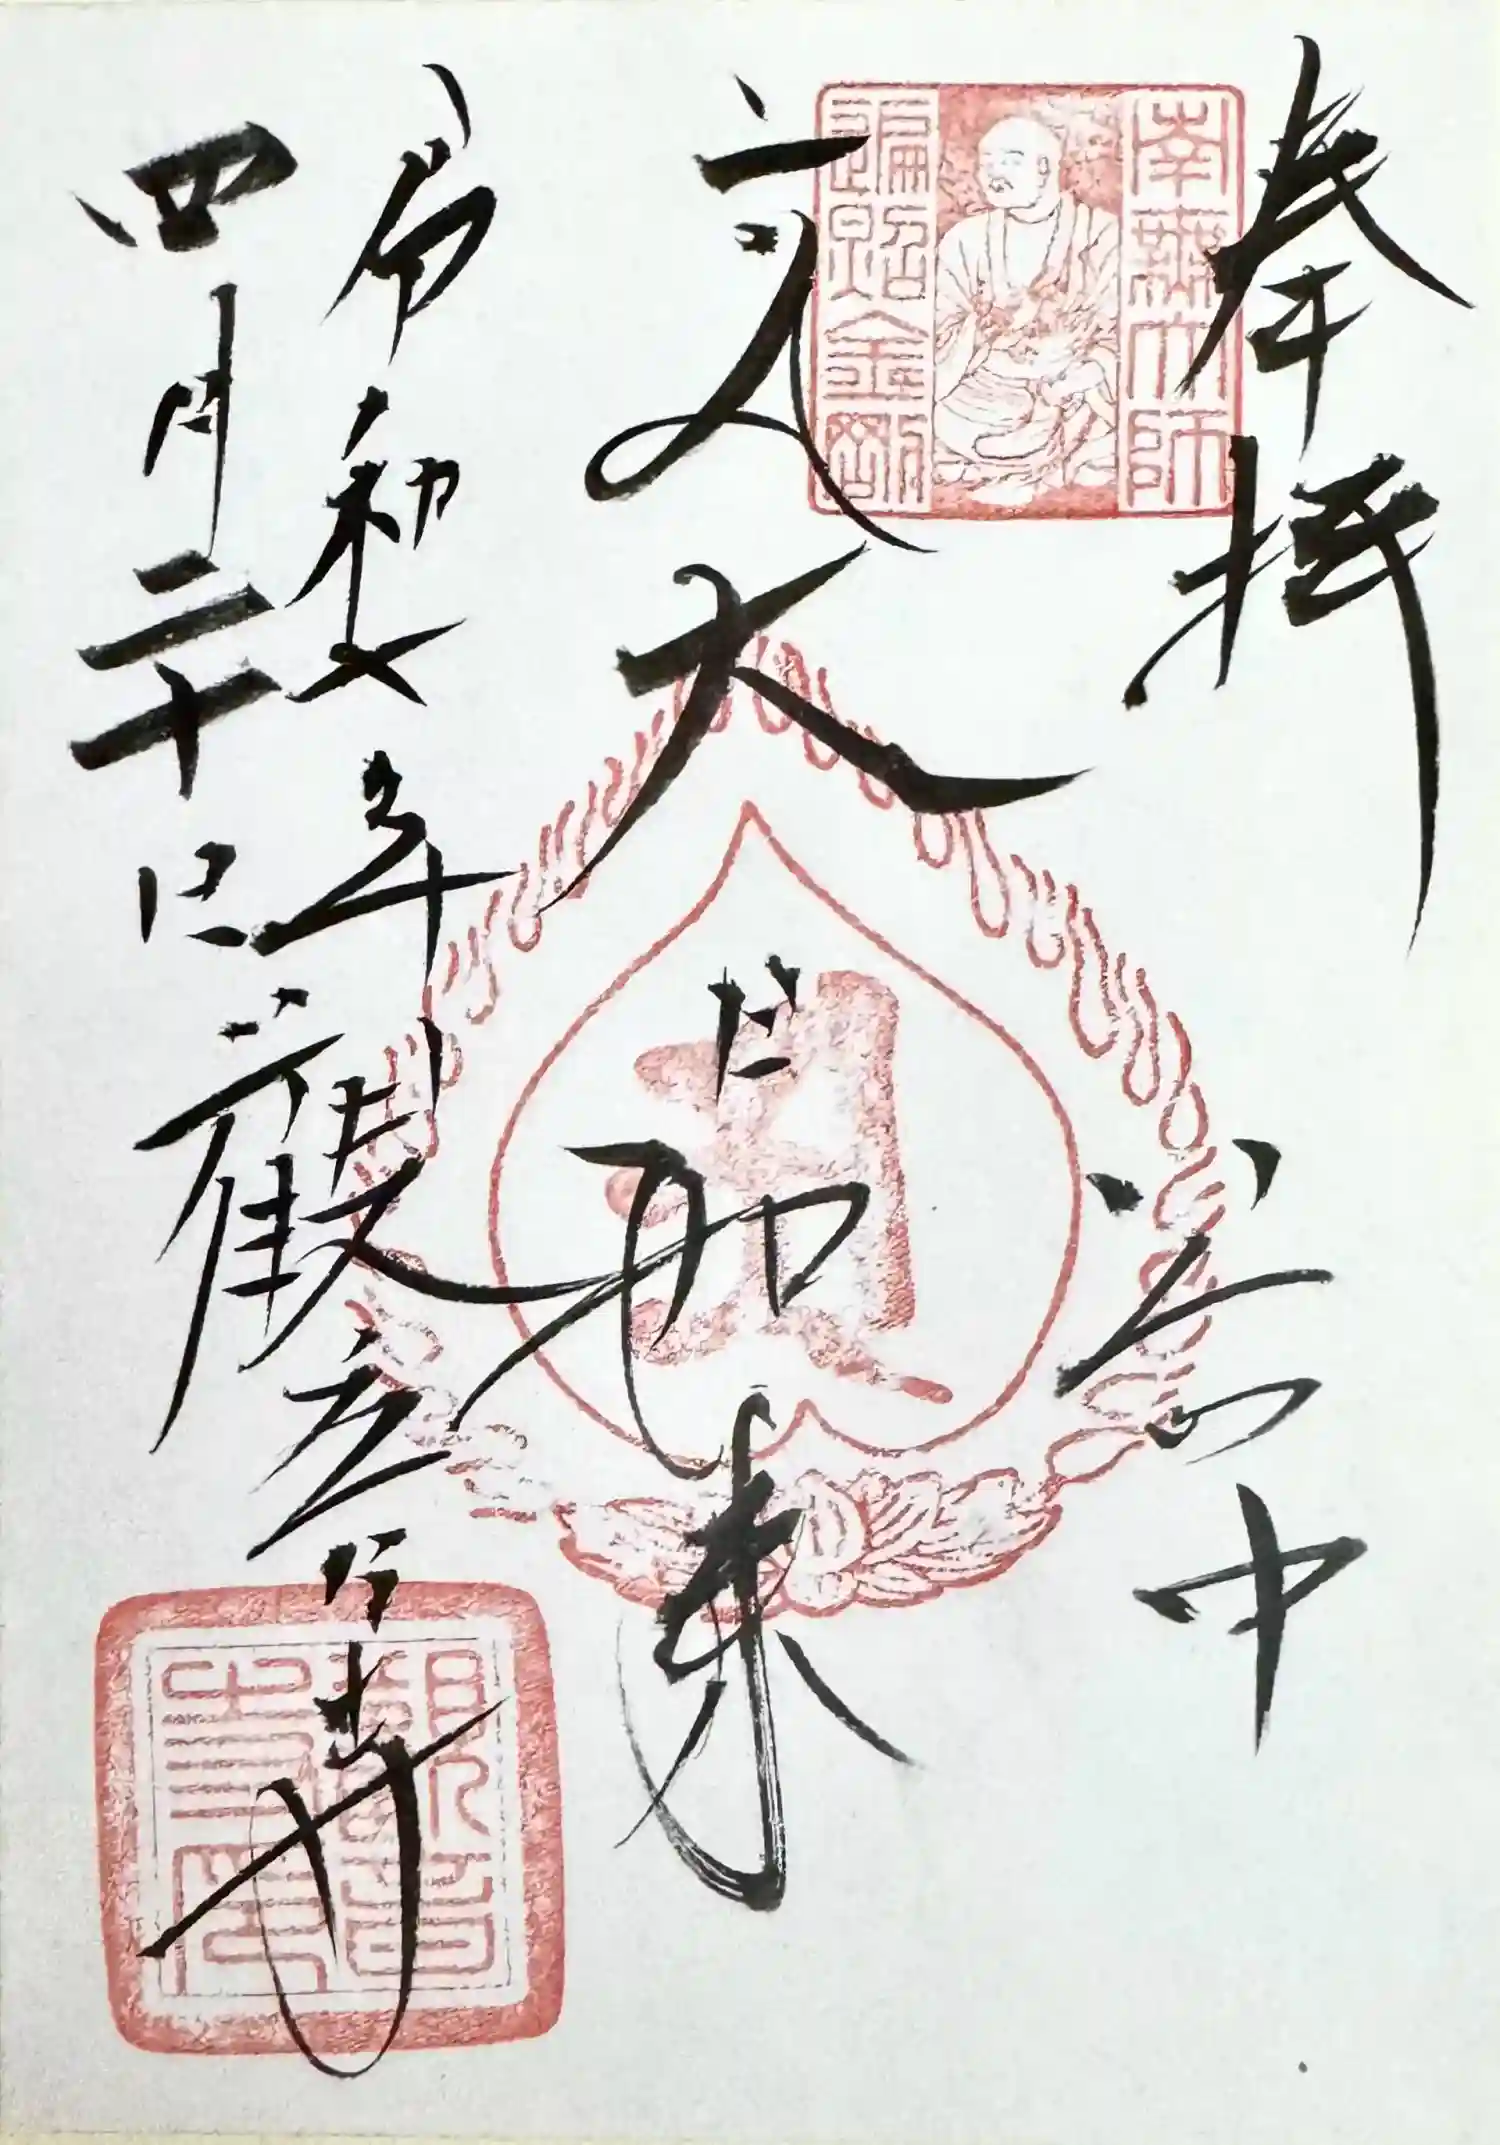 奉拝
南無大師
遍照金剛
谷中
大日如来
令和年
四月二十日
觀音寺
觀音
寺印